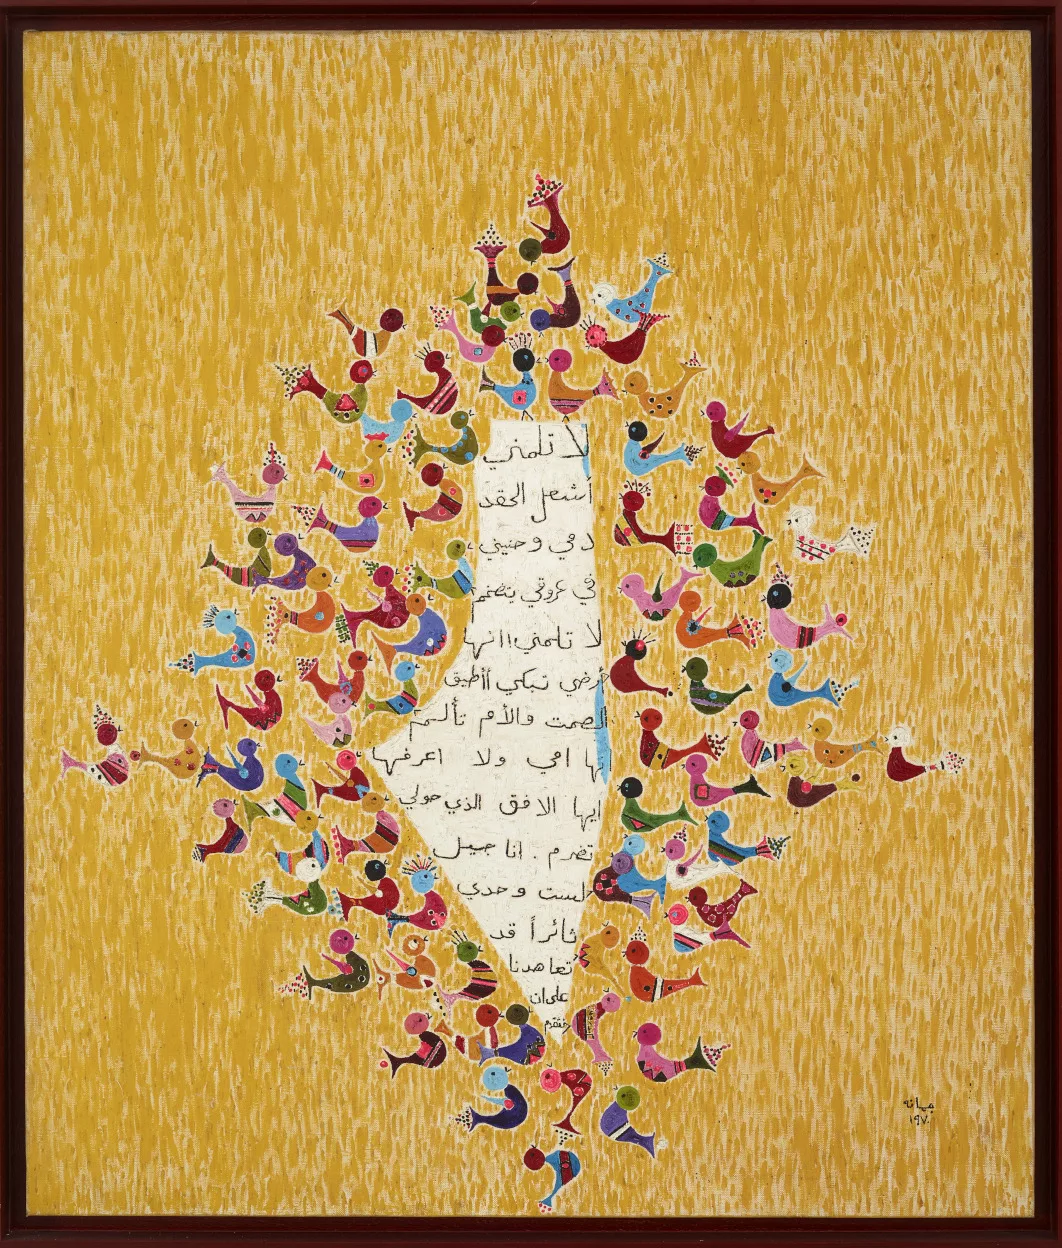 لا تلمني
أشعل الحقد
دمي وحنيني
في عروقي يتضخم
لا تلمني إنها
أرضي تبكي أأطيق
الصمت والأم تألم
إنها امي ولا اعرفها
ايها الافق الذي حولي
تضرم . انا جيل
لست وحدي
ثائراً قد
تعاهدنا
على ان
نتقدم
جمانه
١٩٧٠